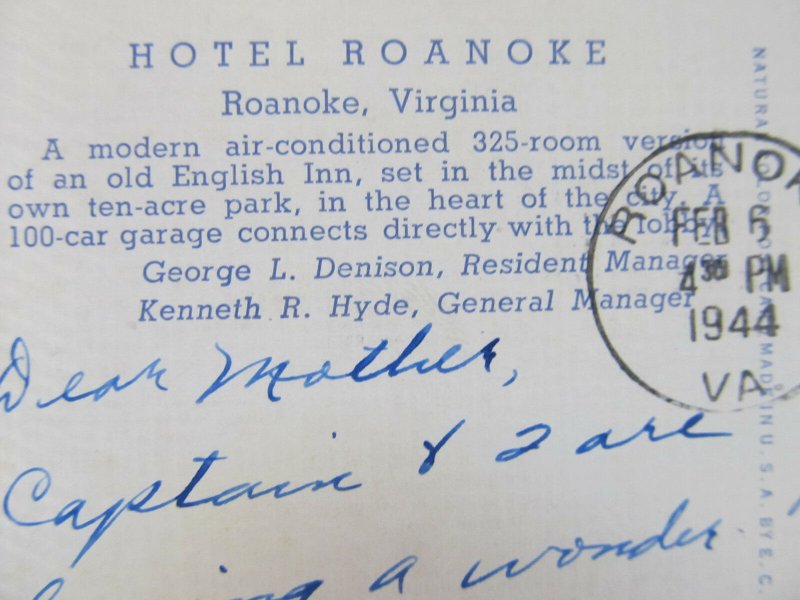 HOTEL ROANOKE
Roanoke, Virginia
A modern air-conditioned 325-room version
of an old English Inn, set in the midst of its
own ten-acre park, in the heart of the city. A
100-car garage connects directly with the lobby.
George L. Denison, Resident Manager
Kenneth R. Hyde, General Manager
ROANOK
FEB 5
4 30 PM
1944
VA
NATURAL COLOR CARD MADE IN U.S.A. BY E. C.
Dear Mother,
Captain & I are
a wonder